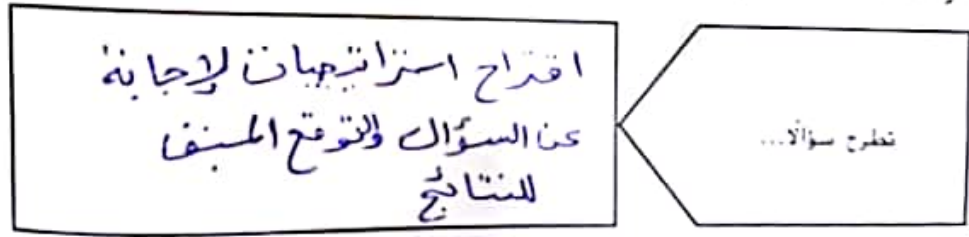 نطرح سؤالًا...
اقتراح استراتيجيات لإجابة
عن السؤال والتوقع المسبق
للنتائج